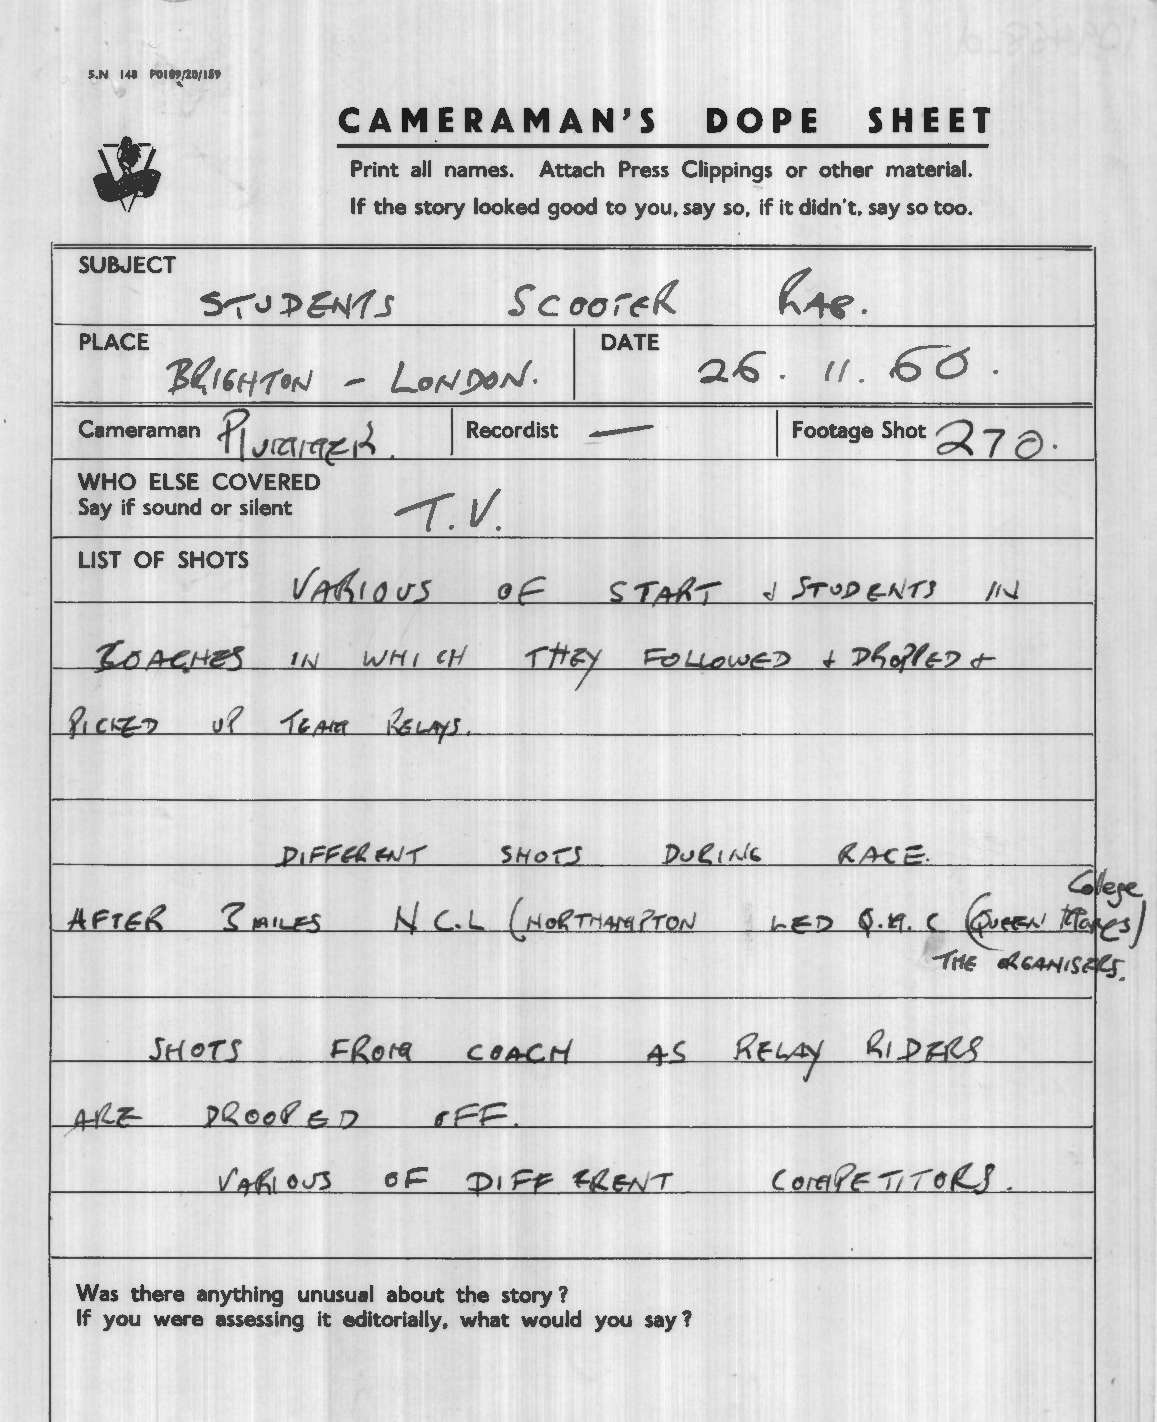 S.N 148 P0189/20/159
CAMERAMAN'S DOPE SHEET
Print all names. Attach Press Clippings or other material.
If the story looked good to you, say so, if it didn't, say so too.
SUBJECT
STUDENTS SCOOTER RAG.
PLACE
BRIGHTON - LONDON.
DATE
26. 11. 60.
Cameraman PLUMMER.
Recordist —
Footage Shot 270.
WHO ELSE COVERED
Say if sound or silent
T.V.
LIST OF SHOTS
VARIOUS OF START & STUDENTS IN
COACHES IN WHICH THEY FOLLOWED & DROPPED &
PICKED UP TEAM RELAYS.
DIFFERENT SHOTS DURING RACE.
AFTER 3 MILES N C.L (NORTHAMPTON LED Q.M. C (QUEEN Marys College)
THE ORGANISERS.
SHOTS FROM COACH AS RELAY RIDERS
ARE DROOPED OFF.
VARIOUS OF DIFFERENT COMPETITORS.
Was there anything unusual about the story?
If you were assessing it editorially, what would you say?